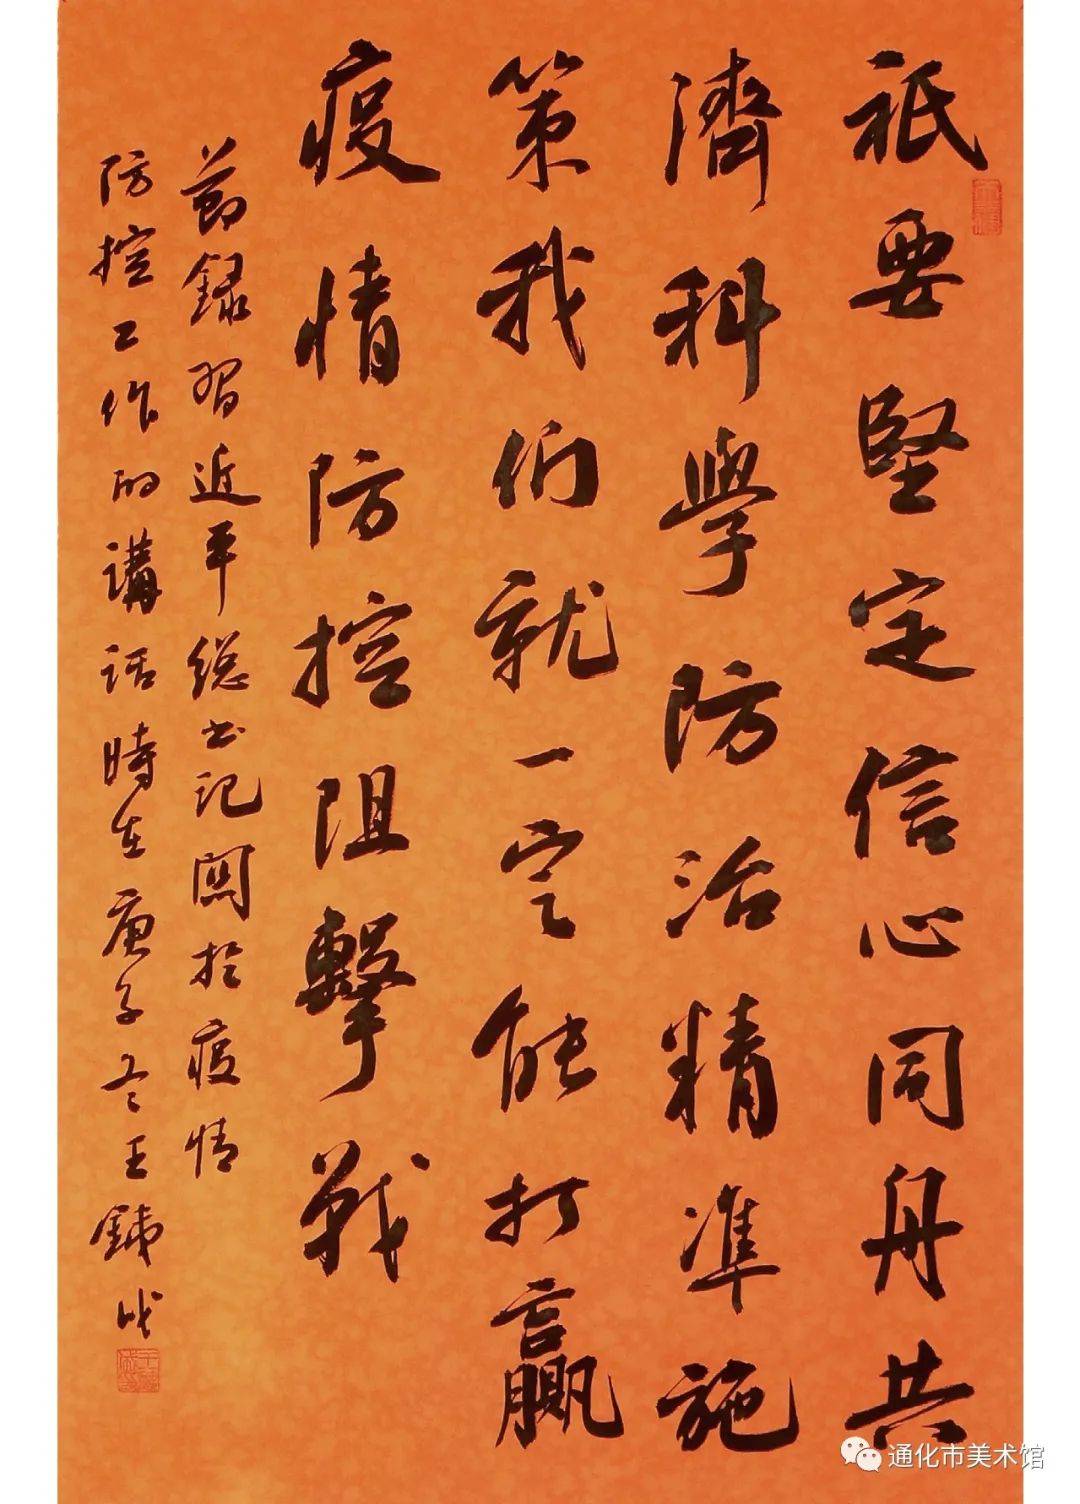 祇要堅定信心同舟共
濟科學防治精準施
策我们就一定能打贏
疫情防控阻擊戰
節録習近平總书記関於疫情
防控工作的講話時在庚子冬王鉄成
通化市美术馆